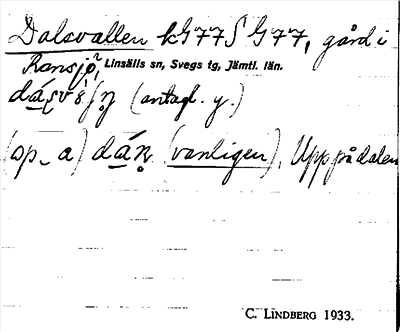 Dalsvallen kG77S G77, gård i
Ransjö, Linsälls sn, Svegs tg, Jämtl. län.
(antagl. y.)
(op_ a) dán̥ (vanligen), Upp på dalen
C. LINDBERG 1933.